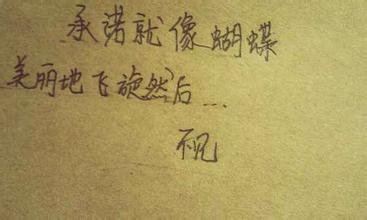 承诺就像蝴蝶
美丽地飞旋然后...
不见